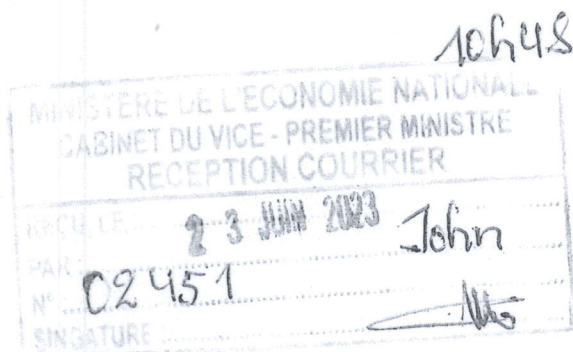 10h48
MINISTERE DE L'ECONOMIE NATIONALE
CABINET DU VICE - PREMIER MINISTRE
RECEPTION COURRIER
RECU LE 23 JUIN 2023
PAR : John
N° 02451
SINGATURE :